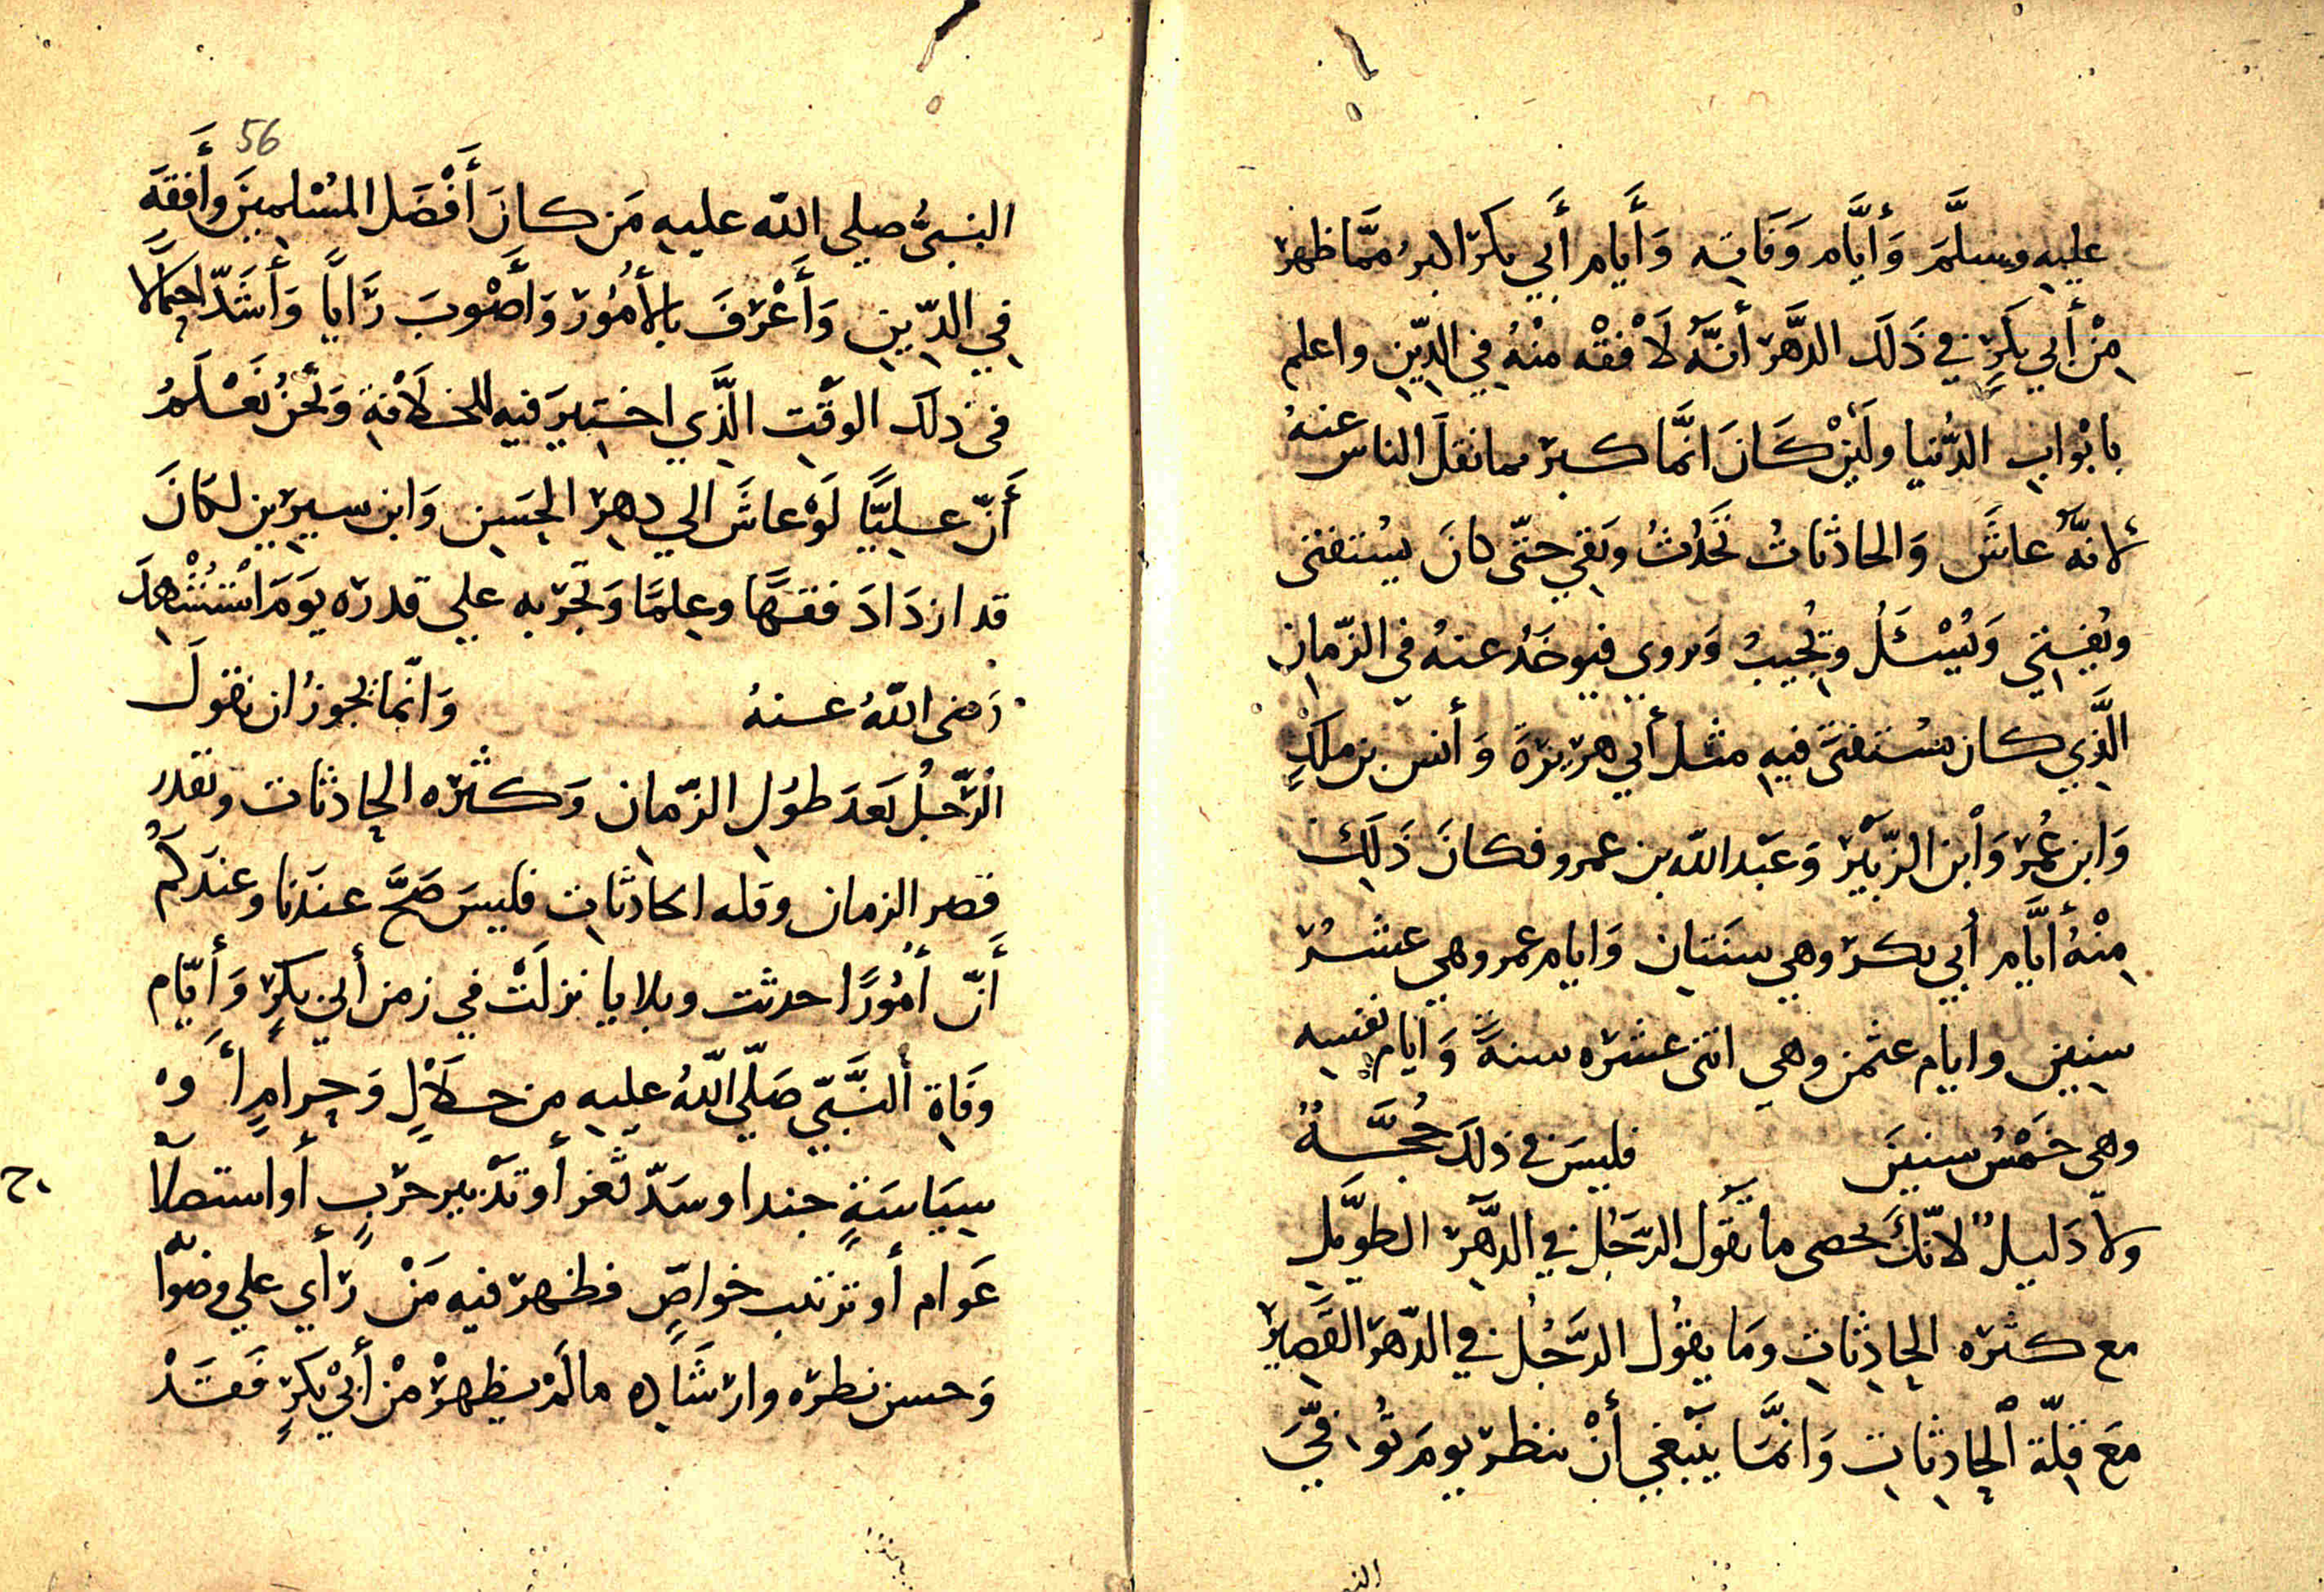 عليه وسلَّمَ وَأيَّام وَفَاتِه وَأَيام أَبي بكر اكثرُ ممَّا ظهر
مِنْ أَبي بكرٍ في ذَلكَ الدَّهر أنَّهُ لَأفْقه منْهُ في الدِّين واعلم
بابْوابِ الدُّنيا ولَئِنْ كَانَ انَّما كبر مما نقلَ الناس عنهُ
لانَّهُ عاشَ وَالحادثاتُ تَحَدُثُ وبَقي حتّى كانَ يُستفتى
ويُفتي وَيُسْئَلُ ويُجيبُ وَيروي فيوخَذُ عنهُ في الزّمانِ
الَّذِي كان يسُتفتَى فيهِ مثل أَبي هريرَة وَأنس بن ملكٍ
وَابن عُمر وَابن الزّبَيْر وَعَبْد الله بن عمرو فكانَ ذَلِكَ
مِنْهُ أَيَّام أَبي بكر وهي سنَتان وَايام عمر وهي عَشرُ
سنين وايام عثمن وهي اثنى عشره سنةً وَايام نفسِه
وهى خَمْسُ سنينَ فليسَ في ذلكَ حُجَّةٌ
ولا دَليلٌ لانّكَ تحصى ما يَقُول الرّجُل في الدهْر الطويلِ
مع كثره الحادِثاتِ وَما يقولُ الرَّجُل في الدّهر القَصِير
مَع قِلّة الْحادِثاتِ وَانمَّا ينْبَغي أنْ ينظر يومَ تُوفّيَ
النبي
56
النبىُّ صلي الله عليه مَن كانَ أَفْضَل المُسْلمينَ وأَفقَهِ
في الدِّينِ وَأَعْرَفَ بالأمُور وَأَصْوبَ رَاياً وَأَشَدّ احتمالا
فى ذلكَ الوقْتِ الَّذِي اختيرَ فيهِ للخلَافةِ وَنَحْنُ نَعْلَمُ
أَنّ عليًّا لَوْ عاشَ الي دهرِ الحسَنِ وَابن سيرين لكانَ
قد ازدَادَ فقهًا وعِلمًا وَتَجْربه علي قدره يَومَ اسْتُشْهِدَ
رَضى اللهُ عنهُ وَانّما يجوزُ ان نقولَ
الرّجُل بَعدَ طوُل الزّمانِ وَكثره الحادثات وبقدر
قصر الزمان وقله الحادثاتِ فليسَ صَحَّ عندَنا وعندَكُم
أَنّ أُمُورًا حدثت وبلايا نزلَتْ في زمن أَبي بكرٍ وَأيّام
وفَاةِ النَّبيّ صَلّي اللهُ عليهِ من حلَالٍ وَحرامٍ أَوْ
سيَاسَةٍ جند او سَدّ ثَغر أو تَدْبير حَرْبٍ أو استصلا
ح
عَوام أو ترتيب خواصٍّ فظهر فيه مَنْ رَأي علي وصَوا
به
وَحسن نظره وارشَاده مالَمْ يظهرْ مْن أَبي بكرٍ فَقَدْ